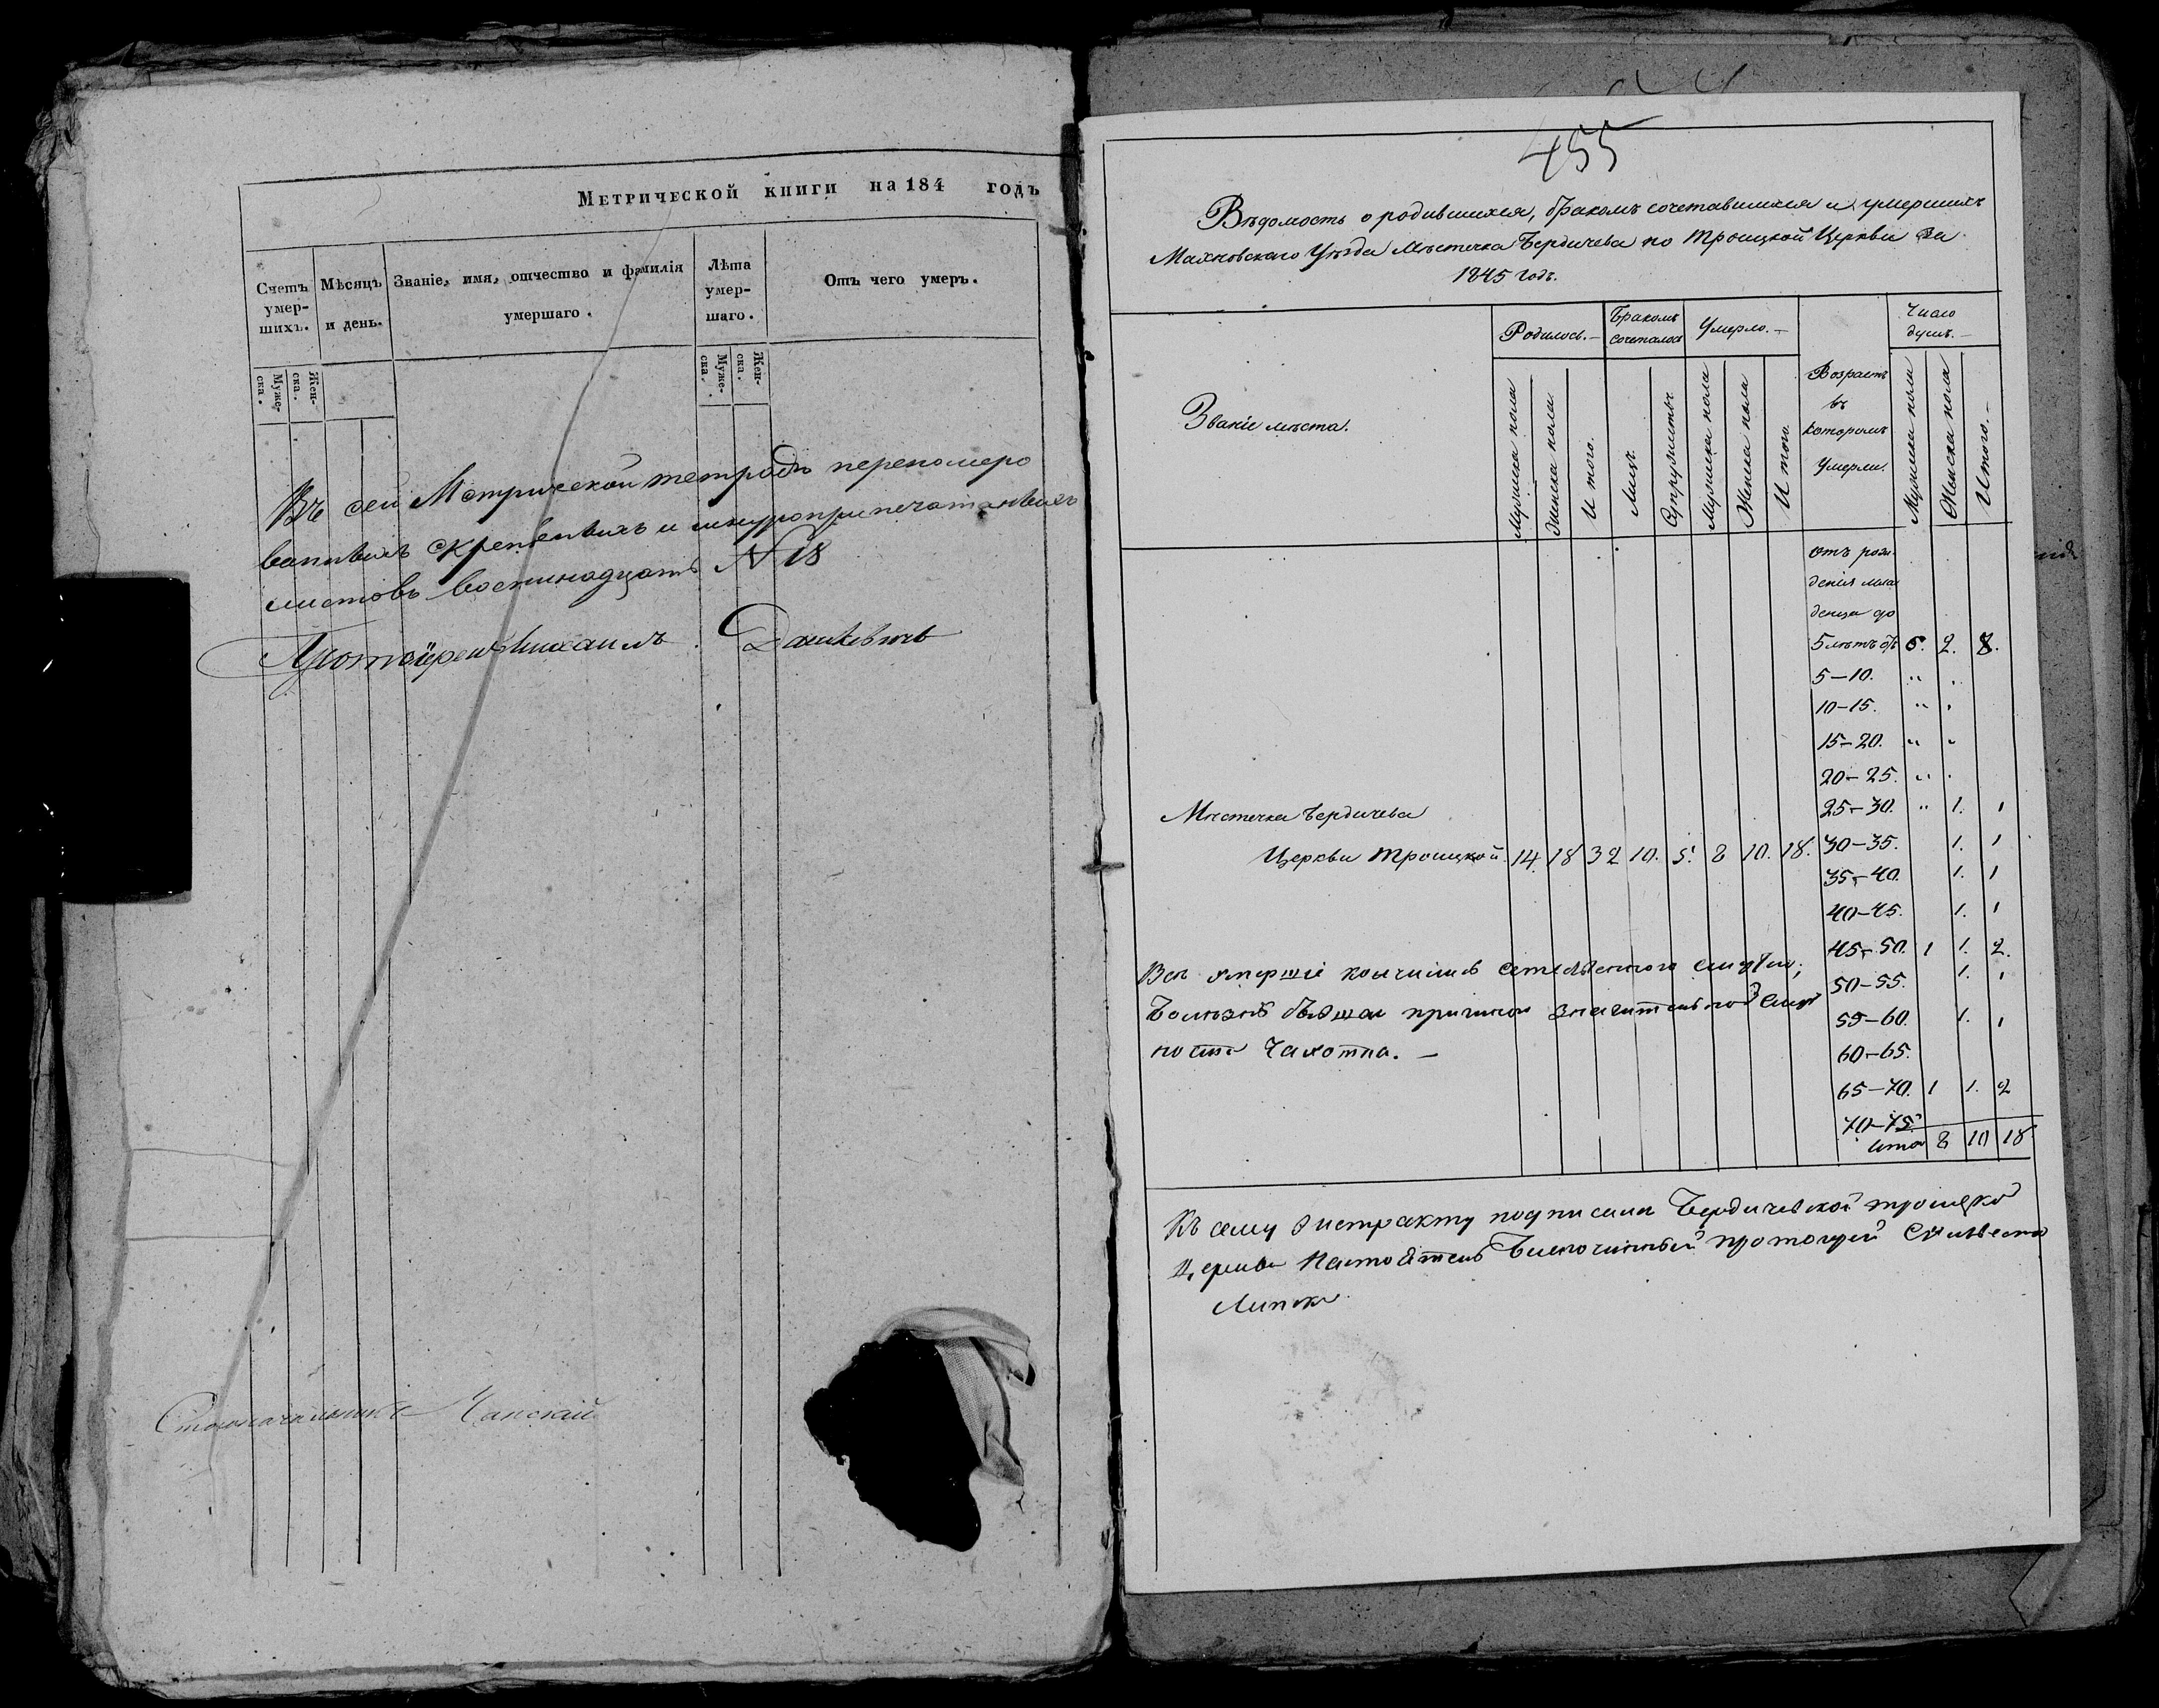 Метрической книги на 184 годъ
Счетъ умер-шихъ.
Мѣсяцъ и день.
Званіе, имя, отчество и фамилія умершаго.
Лѣта умер-шаго.
Отъ чего умеръ.
Муже-ска.
Жен-ска.
Муже-ска.
Жен-ска.
Въ сей Метрической тетрадѣ перенумеро
ванныхъ скрепленныхъ и шнуроприпечатанныхъ
листовъ восемнадцать N 18
Протоіерей Михаилъ Данкевичъ
Столоначальникъ
455
Вѣдомость о родившихся, бракомъ сочетавшихся и умершихъ
Махновскаго Уѣзда Мѣстечка Бердичева по Троицкой Церкви за
1845 годъ.
Званіе мѣста.
Родилось.—
Бракомъ сочеталось
Умерло.—
Возрастъ въ которомъ умерли.
Число душъ.—
Мужеска пола
Женска пола
И того.
Лицъ.
Супружествъ
Мужеска пола
Женска пола
И того.
Мужеска пола
Женска пола
Итого.—
отъ рож
денія мла
денца до
5 лѣтъ 6. 2. 8.
5—10. " "
10—15. " "
15—20. " "
20—25. " "
25—30. " 1. 1
Мѣстечка Бердичева
Церкви Троицкой. 14. 18 32 10. 5. 8 10. 18.
30—35. 1. 1
35—40. 1. 1
40—45. 1. 1
45—50. 1 1. 2.
50—55. 1. 1
55—60. 1. 1
60—65.
65—70. 1 1. 2
70—75.
Итого 8 10 18.
Всѣ умершіе
Болѣзнь бывшая причиною значительной смерт
ности Чахотка.—
Къ сему экстракту подписали Бердичевской Троицкой
Церкви Настоятель Благочинный